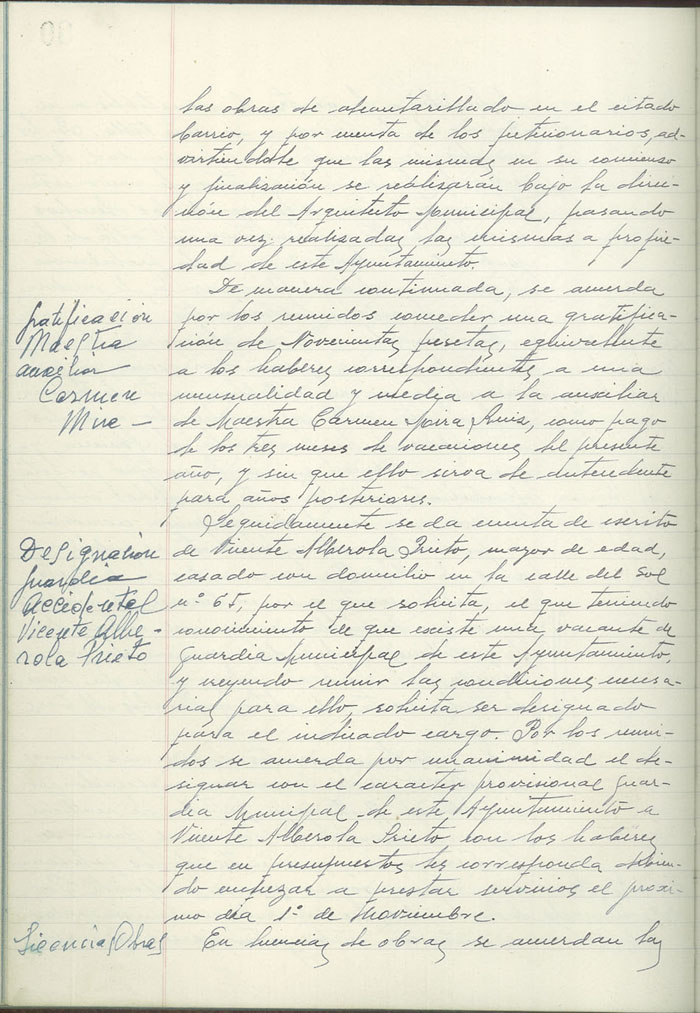 las obras de alcantarillado en el citado
barrio, y por cuenta de los peticionarios, ad-
virtiendole que las mismas en su comienzo
y finalización se realizarán bajo la direc-
ción del Arquitecto Municipal, pasando
una vez realizadas las mismas a propie-
dad de este Ayuntamiento.
De manera continuada, se acuerda
Gratificación
Maestra
auxiliar
Carmen
Mira —
por los reunidos conceder una gratifica-
ción de Novecientas pesetas, equivalente
a los haberes correspondientes a una
mensualidad y media a la auxiliar
de Maestra Carmen Mira Ruiz, como pago
de los tres meses de vacaciones del presente
año, y sin que ello sirva de
para años posteriores.
Seguidamente se da cuenta de escrito
Designación
Guardia
Accidental
Vicente Albe-
rola Prieto
de Vicente Alberola Prieto, mayor de edad,
casado con domicilio en la calle del Sol
nº 65, por el que solicita, el que teniendo
conocimiento de que existe una vacante de
Guardia Municipal de este Ayuntamiento,
y creyendo reunir las condiciones necesa-
rias para ello, solicita ser designado
para el indicado cargo. Por los reuni-
dos se acuerda por unanimidad el de-
signar con el caracter provisional Guar-
dia Municipal de este Ayuntamiento a
Vicente Alberola Prieto con los haberes
que en presupuestos les corresponda debien-
do empezar a prestar servicios el próxi-
mo día 1º de Noviembre.
Licencias Obras
En licencias de obras se acuerdan las